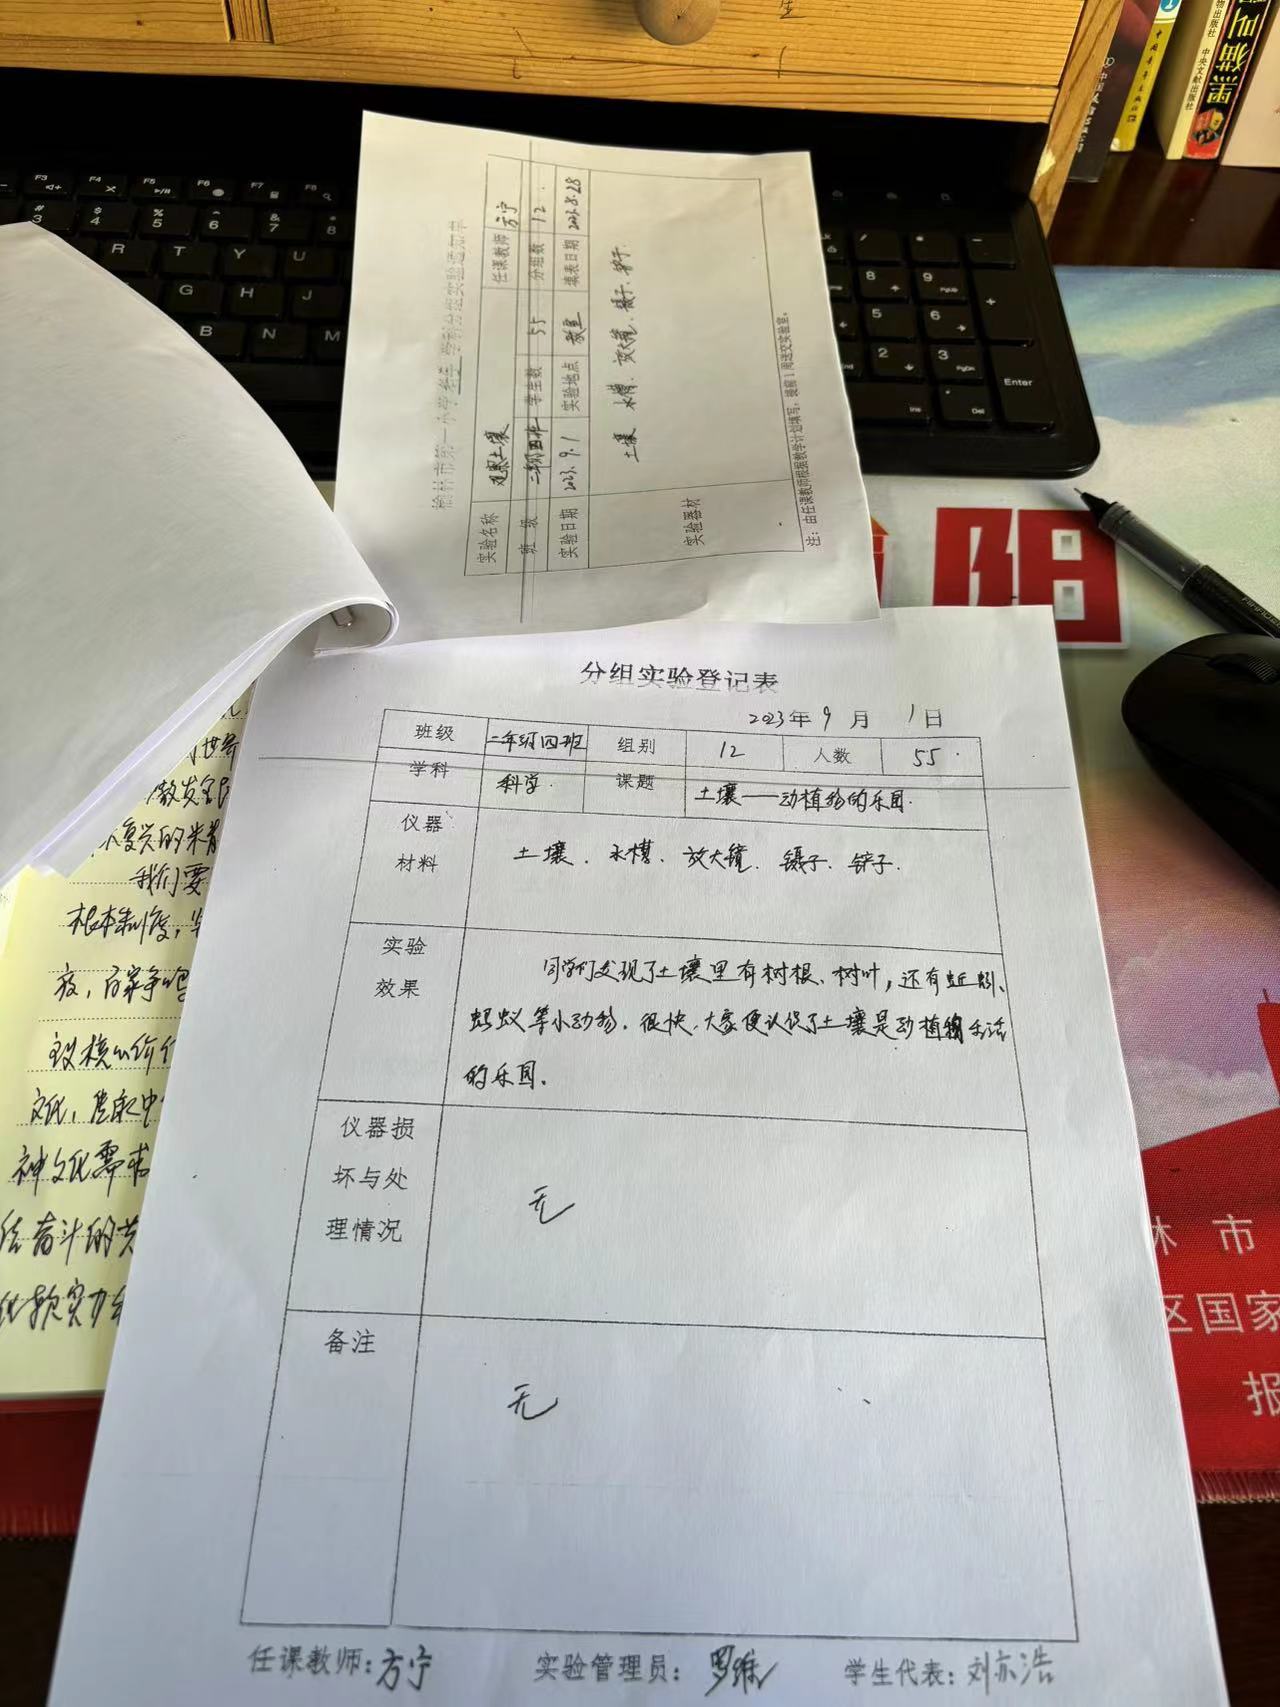 分组实验登记表
2023年 9 月 1日
班级 二年级四班 组别 12 人数 55
学科 科学 课题 土壤——动植物的乐园
仪器
材料
土壤、水槽、放大镜、镊子、铲子.
实验
效果
同学们发现了土壤里有树根、树叶,还有蚯蚓、
蚂蚁等小动物.很快,大家便认识了土壤是动植物生活
的乐园.
仪器损
坏与处
理情况
无
备注
无
任课教师:方宁 实验管理员: 学生代表:刘亦浩
榆林市第一小学科学学科分组实验通知单
实验名称 观察土壤 任课教师 方宁
班级 二年级四班 学生数 55 分组数 12
实验日期 2023.9.1 实验地点 教室 填表日期 2023.8.28
实验器材
土壤 水槽、放大镜、镊子、铲子.
注:由任课教师根据教学计划填写,提前1周送交实验室。
我们要
根本制度,
神文化需求
阳
林市
区国家
报
黑猫
中央文献出版社
Enter